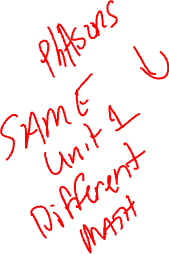 PhAsors
SAME
unit 1
Different
MATH